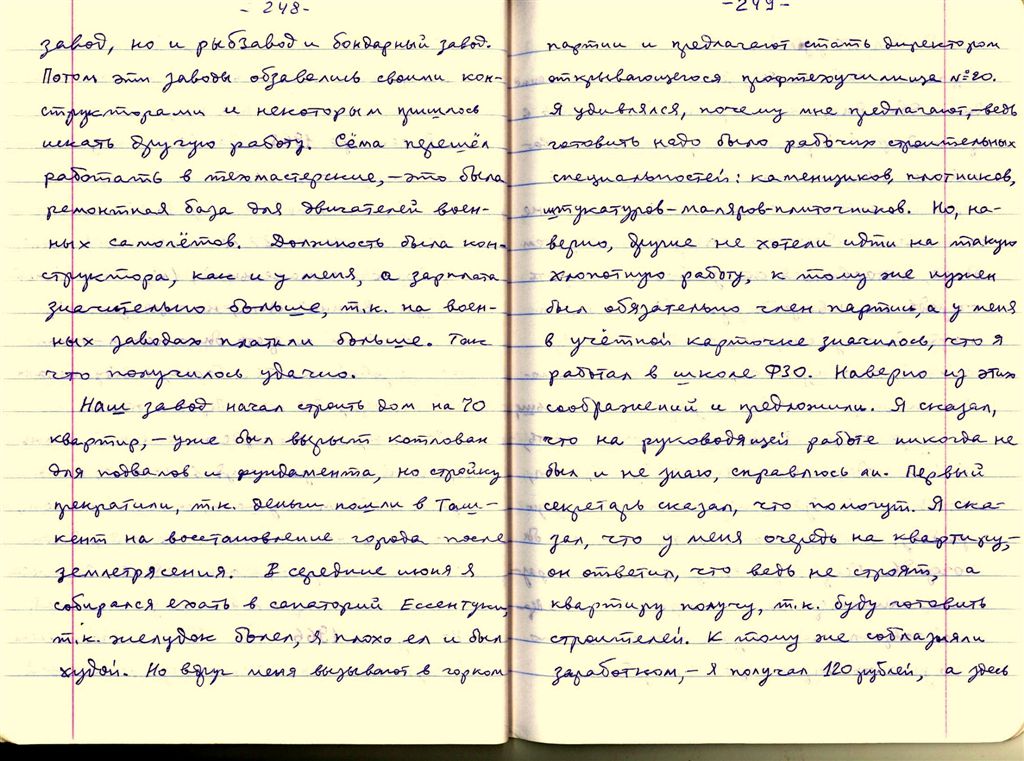 - 248-
завод, но и рыбзавод и бондарный завод.
Потом эти заводы обзавелись своими кон-
структорами и некоторым пришлось
искать другую работу. Сёма перешёл
работать в техмастерские, – это была
ремонтная база для двигателей воен-
ных самолётов. Должность была кон-
структора, как и у меня, а зарплата
значительно больше, т.к. на воен-
ных заводах платили больше. Так
что получилось удачно.
Наш завод начал строить дом на 70
квартир, – уже был вырыт котлован
для подвалов и фундамента, но стройку
прекратили, т.к. деньги пошли в Таш-
кент на восстановление города после
землетрясения. В середине июня я
собирался ехать в санаторий Ессентуки,
т.к. желудок болел, я плохо ел и был
худой. Но вдруг меня вызывают в горком
-249-
партии и предлагают стать директором
открывающегося профтехучилища №20.
Я удивлялся, почему мне предлагают, – ведь
готовить надо было рабочих строительных
специальностей: каменщиков, плотников,
штукатуров-маляров-плиточников. Но, на-
верно, другие не хотели идти на такую
хлопотную работу, к тому же нужен
был обязательно член партии, а у меня
в учётной карточке значилось, что я
работал в школе ФЗО. Наверно из этих
соображений и предложили. Я сказал,
что на руководящей работе никогда не
был и не знаю, справлюсь ли. Первый
секретарь сказал, что помогут. Я ска-
зал, что у меня очередь на квартиру, –
он ответил, что ведь не строят, а
квартиру получу, т.к. буду готовить
строителей. К тому же соблазняли
заработком, – я получал 120 рублей, а здесь